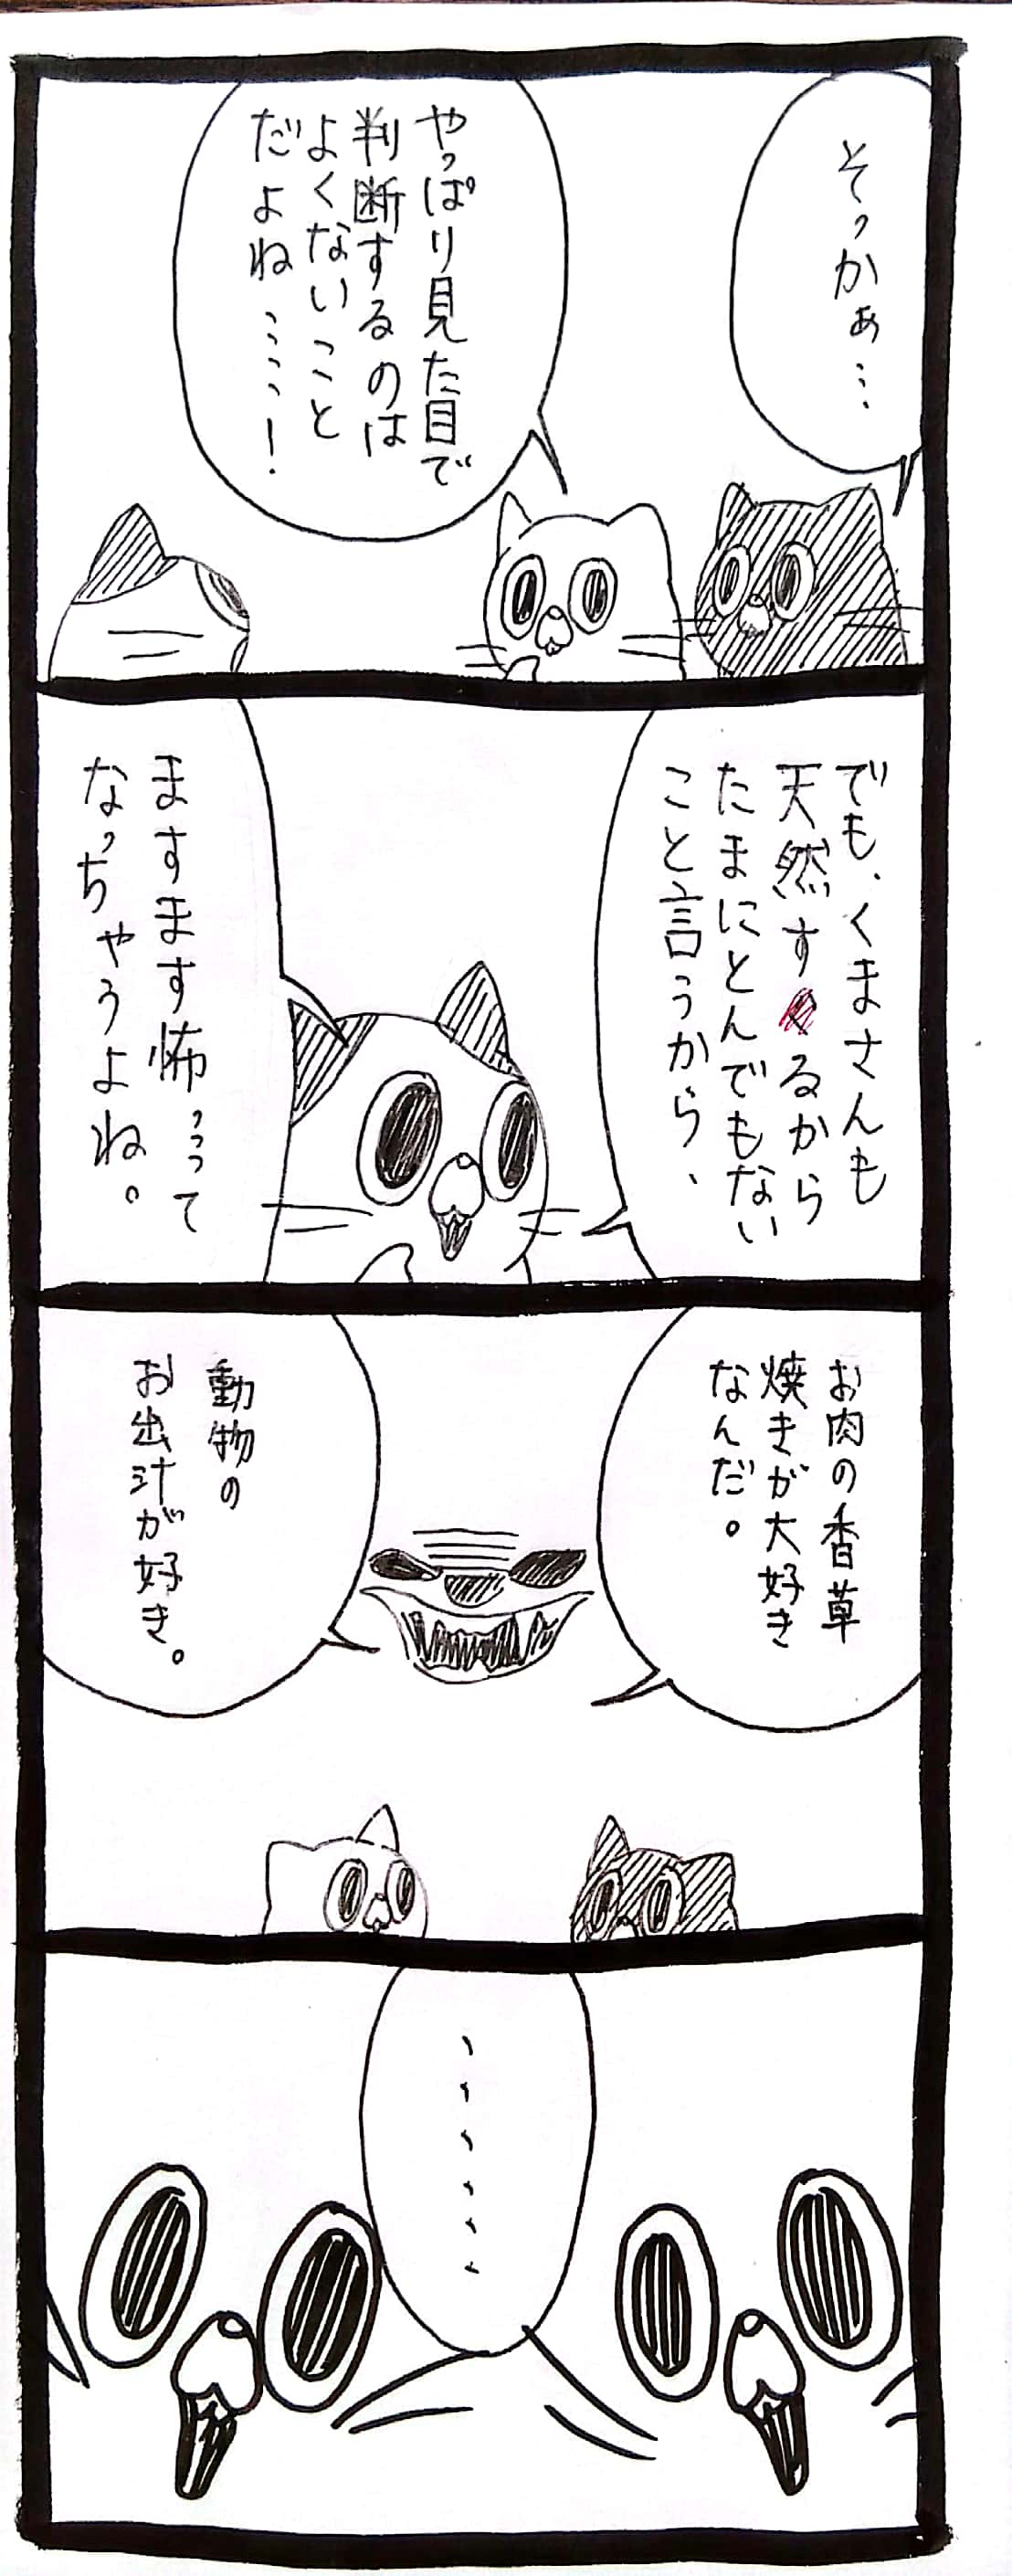 そっかぁ…
やっぱり見た目で
判断するのは
よくないこと
だよね……！
でも、くまさんも
天然すぎるから
たまにとんでもない
こと言うから、
ますます怖がって
なっちゃうよね。
お肉の香草
焼きが大好き
なんだ。
動物の
お出汁が好き。
……